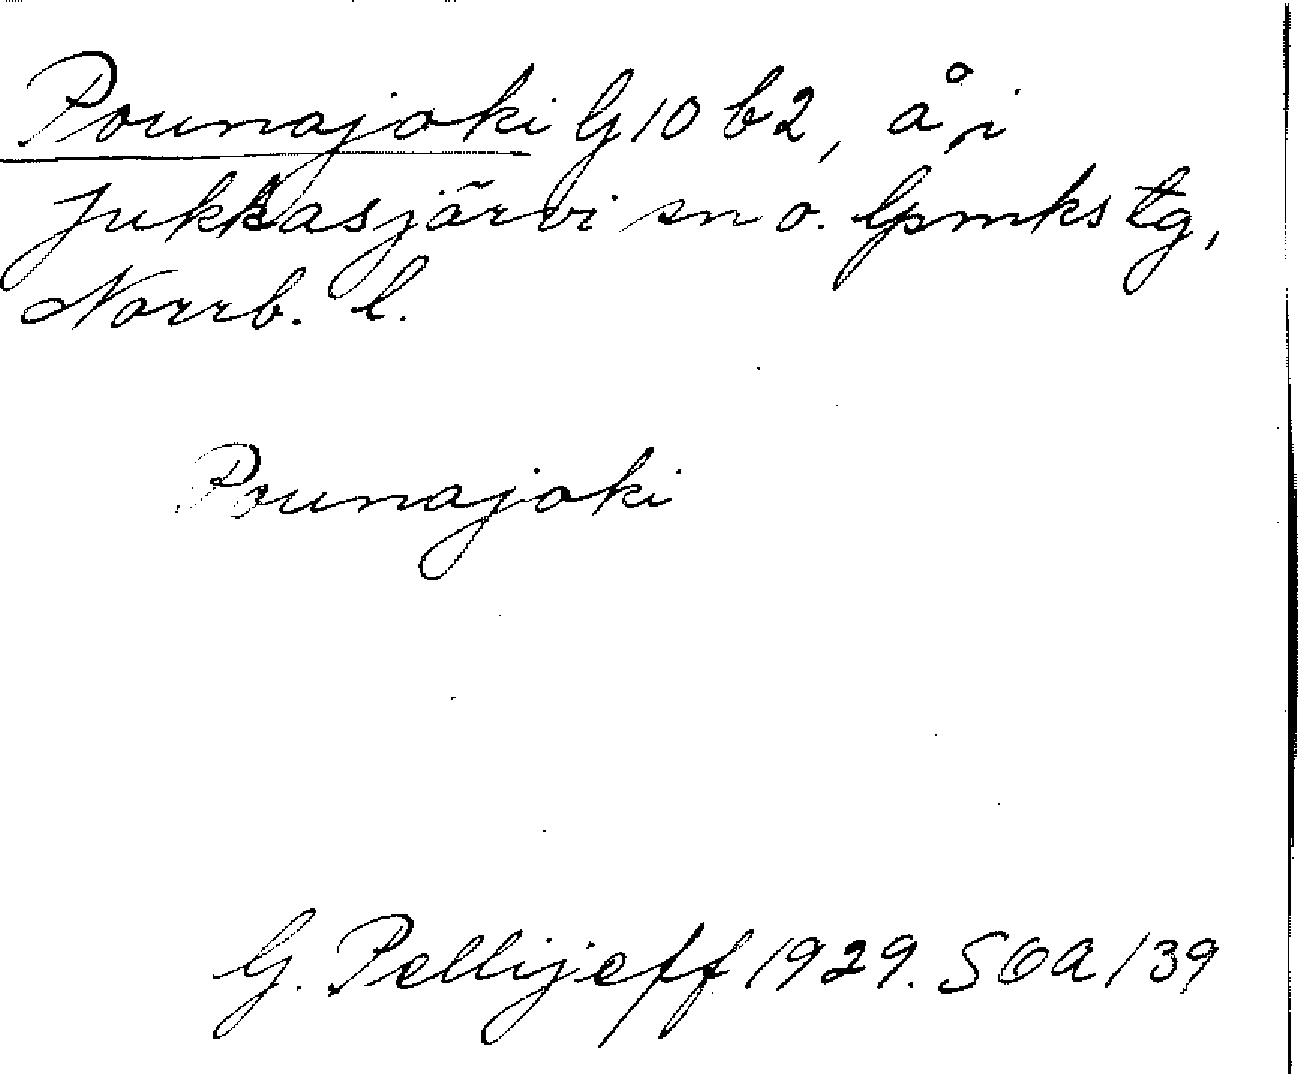 Pounajoki G 10 b2, å i
Jukkasjärvi sn o. lpmks tg,
Norrb. l.
Pounajoki
G. Pellijeff 1929. SOA 139